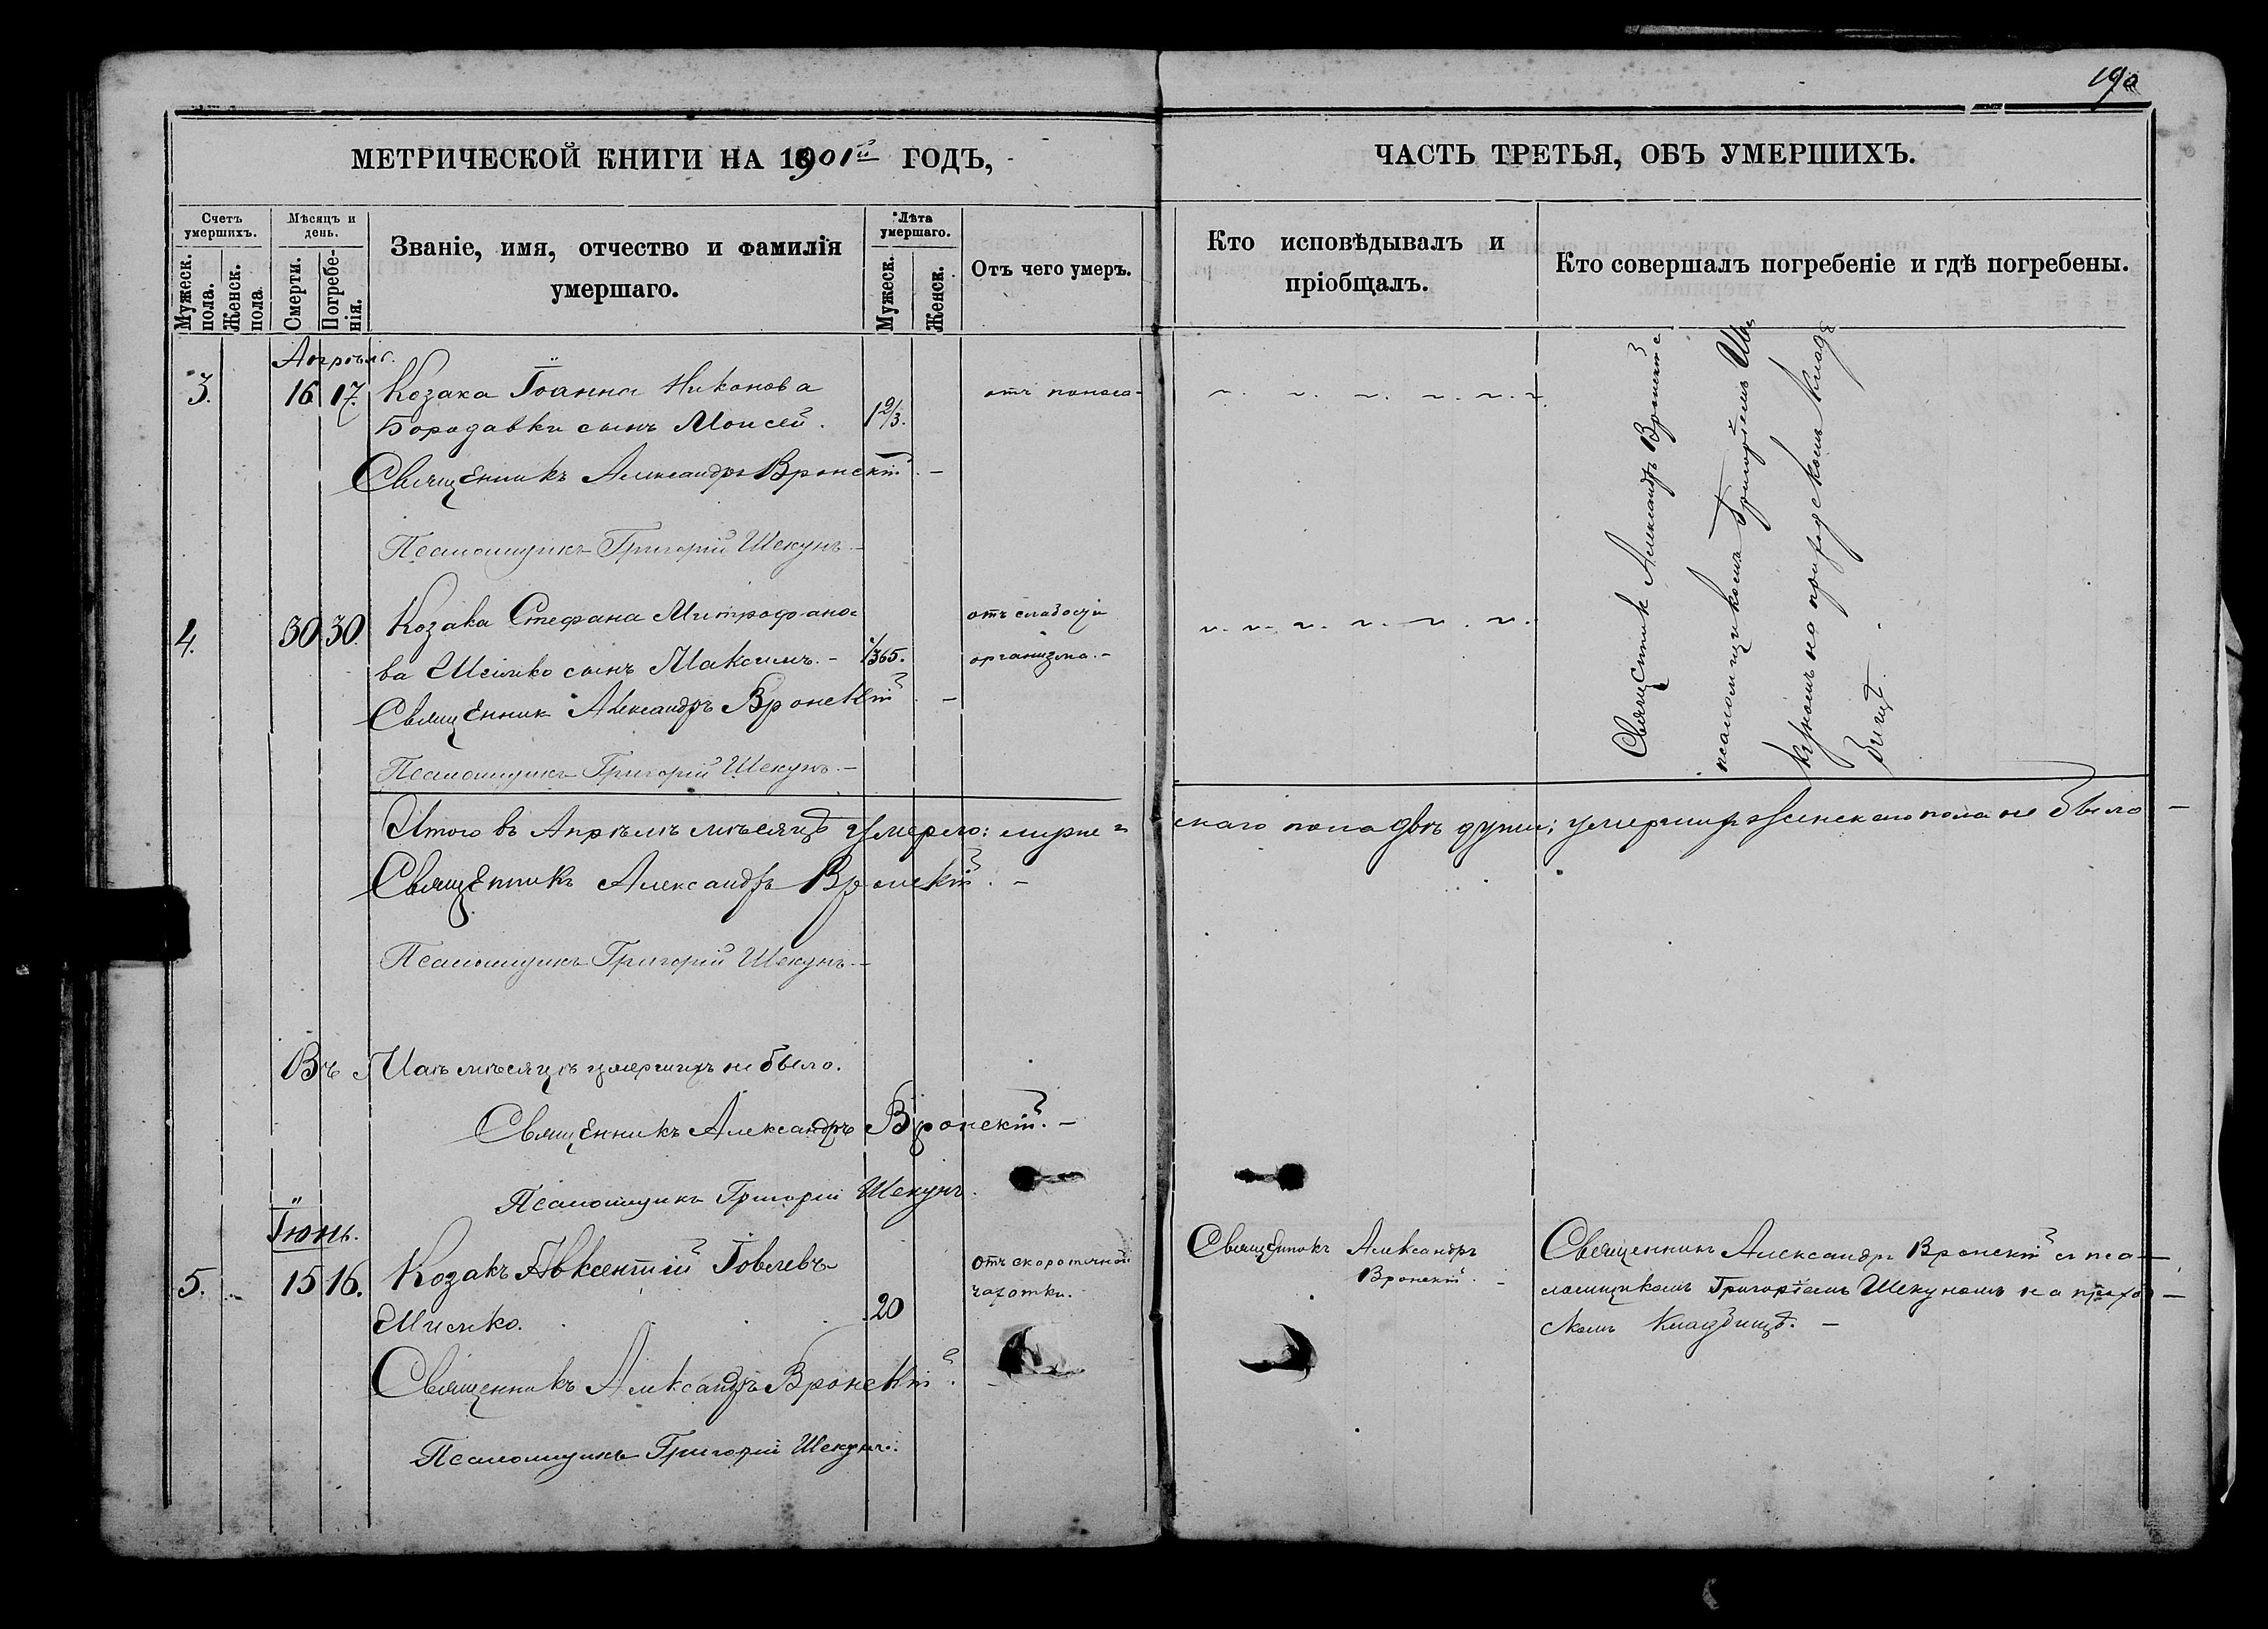 190
МЕТРИЧЕСКОЙ КНИГИ НА 1901й ГОДЪ,
ЧАСТЬ ТРЕТЬЯ, ОБЪ УМЕРШИХЪ.
Счетъ умершихъ.
Мужеск. пола.
Женск. пола
Мѣсяцъ и день.
Смерти.
Погребенія.
Званіе, имя, отчество и фамилія
умершаго.
Лѣта умершаго.
Мужеск.
Женск.
Отъ чего умеръ.
Кто исповѣдывалъ и
пріобщалъ.
Кто совершалъ погребеніе и гдѣ погребены.
Апрѣль.
3. 16 17. Козака Іоанна Никонова отъ поноса
Бородавки сынъ Моисей. 1 2/3.
Священникъ Александръ Вронскій. -
Псаломщикъ Григорій Шекунъ. -
4. 30 30. Козака Стефана Митрофано= отъ слабости
ва сынъ Максимъ. - 1/365. организма. -
Священник Александръ Вронскій. -
Псаломщикъ Григорій Шекунъ. -
Священник Александръ Вронскій с
псаломщикомъ Григоріемъ Ше
куномъ на приходскомъ кладъ
бищѣ.
Итого въ Апрѣлѣ мѣсяцѣ умерло: мужескаго пола двѣ души; умершихъ женскаго пола не было -
Священникъ Александръ Вронскій. -
Псаломщикъ Григорій Шекунъ. -
Въ Маѣ мѣсяцѣ умершихъ не было.
Священникъ Александръ Вронскій. -
Псаломщикъ Григорій Шекунъ.
Іюнь.
5. 15 16. Козакъ Авксентій Іовлевъ 20
Мисько.
отъ скоротечной
чахотки.
Священникъ Александръ
Вронскій. -
Священникъ Александръ Вронскій съ пса-
ломщикомъ Григоріемъ Шекуномъ на приход-
скомъ кладбищѣ. -
Священникъ Александръ Вронскій. -
Псаломщикъ Григорій Шекунъ.